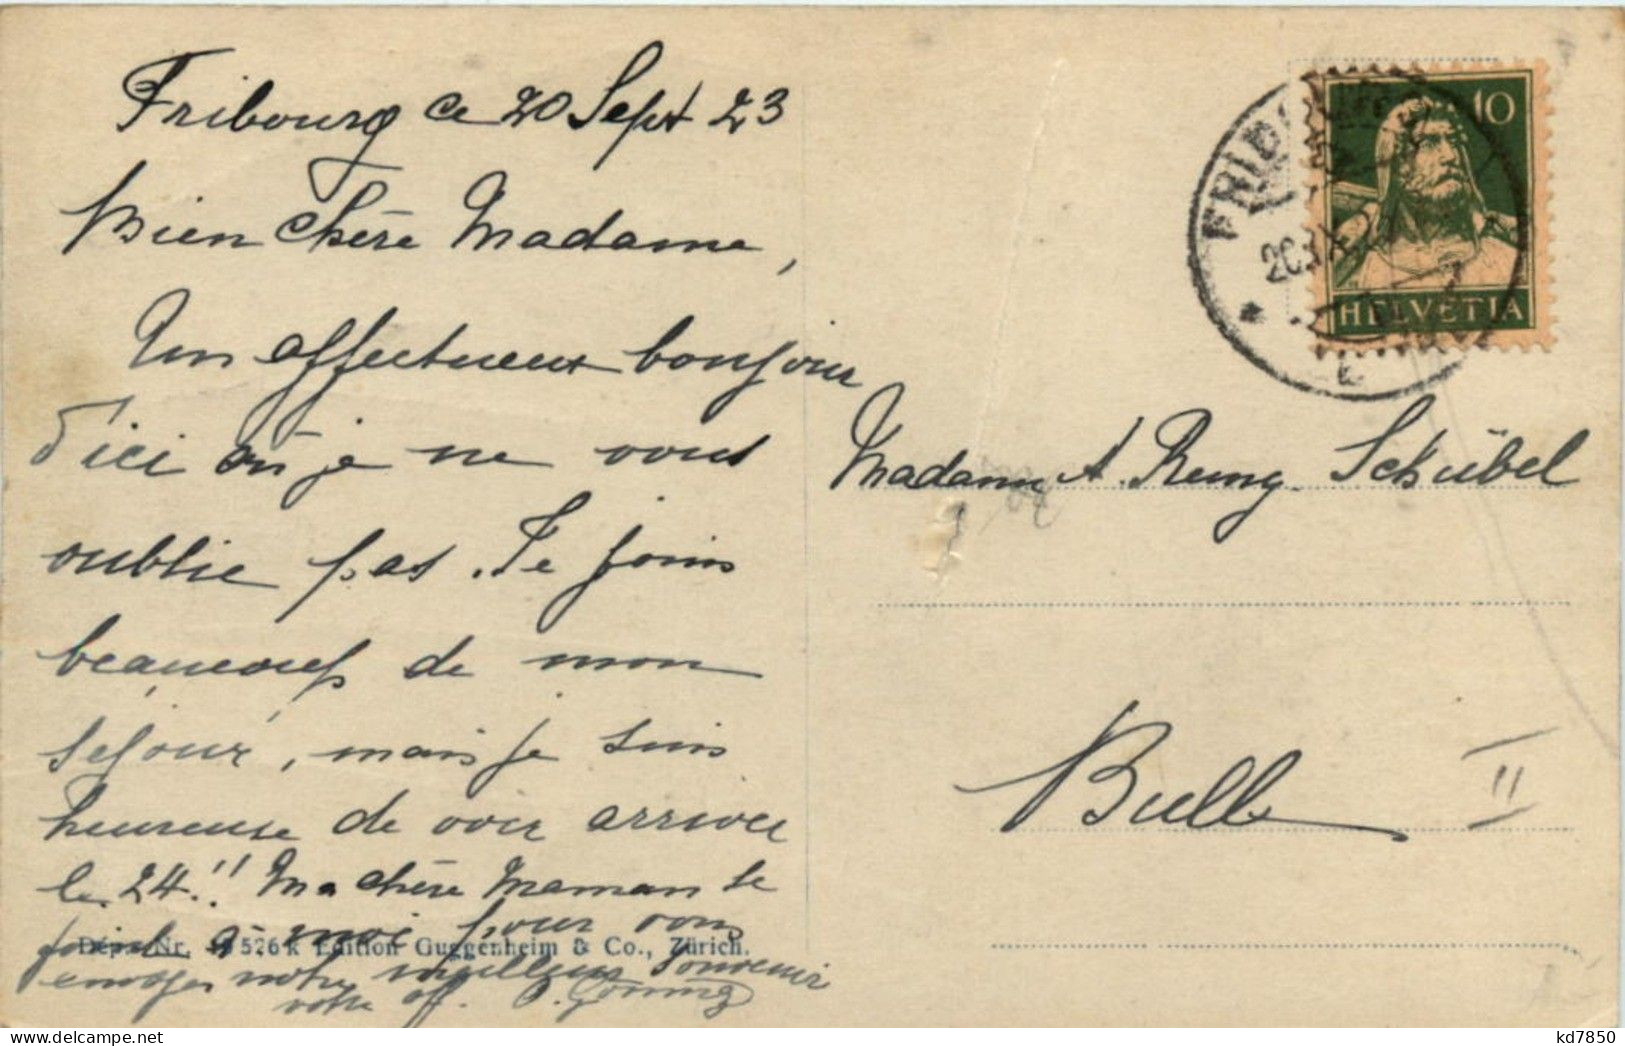 Fribourg ce 20 Sept 23
Bien chère Madame,
Un affectueux bonjour
d'ici où je ne vous
oublie pas. Je jouis
beaucoup de mon
séjour, mais je suis
heureuse de voir arriver
le 24!! Ma chère Maman se
joint à moi pour vous
envoyer notre meilleur souvenir
votre aff.
Dép. Nr. 576 k Edition Guggenheim & Co., Zürich.
10
HELVETIA
Madame A. Remy Schübel
Bulle II
kd7850